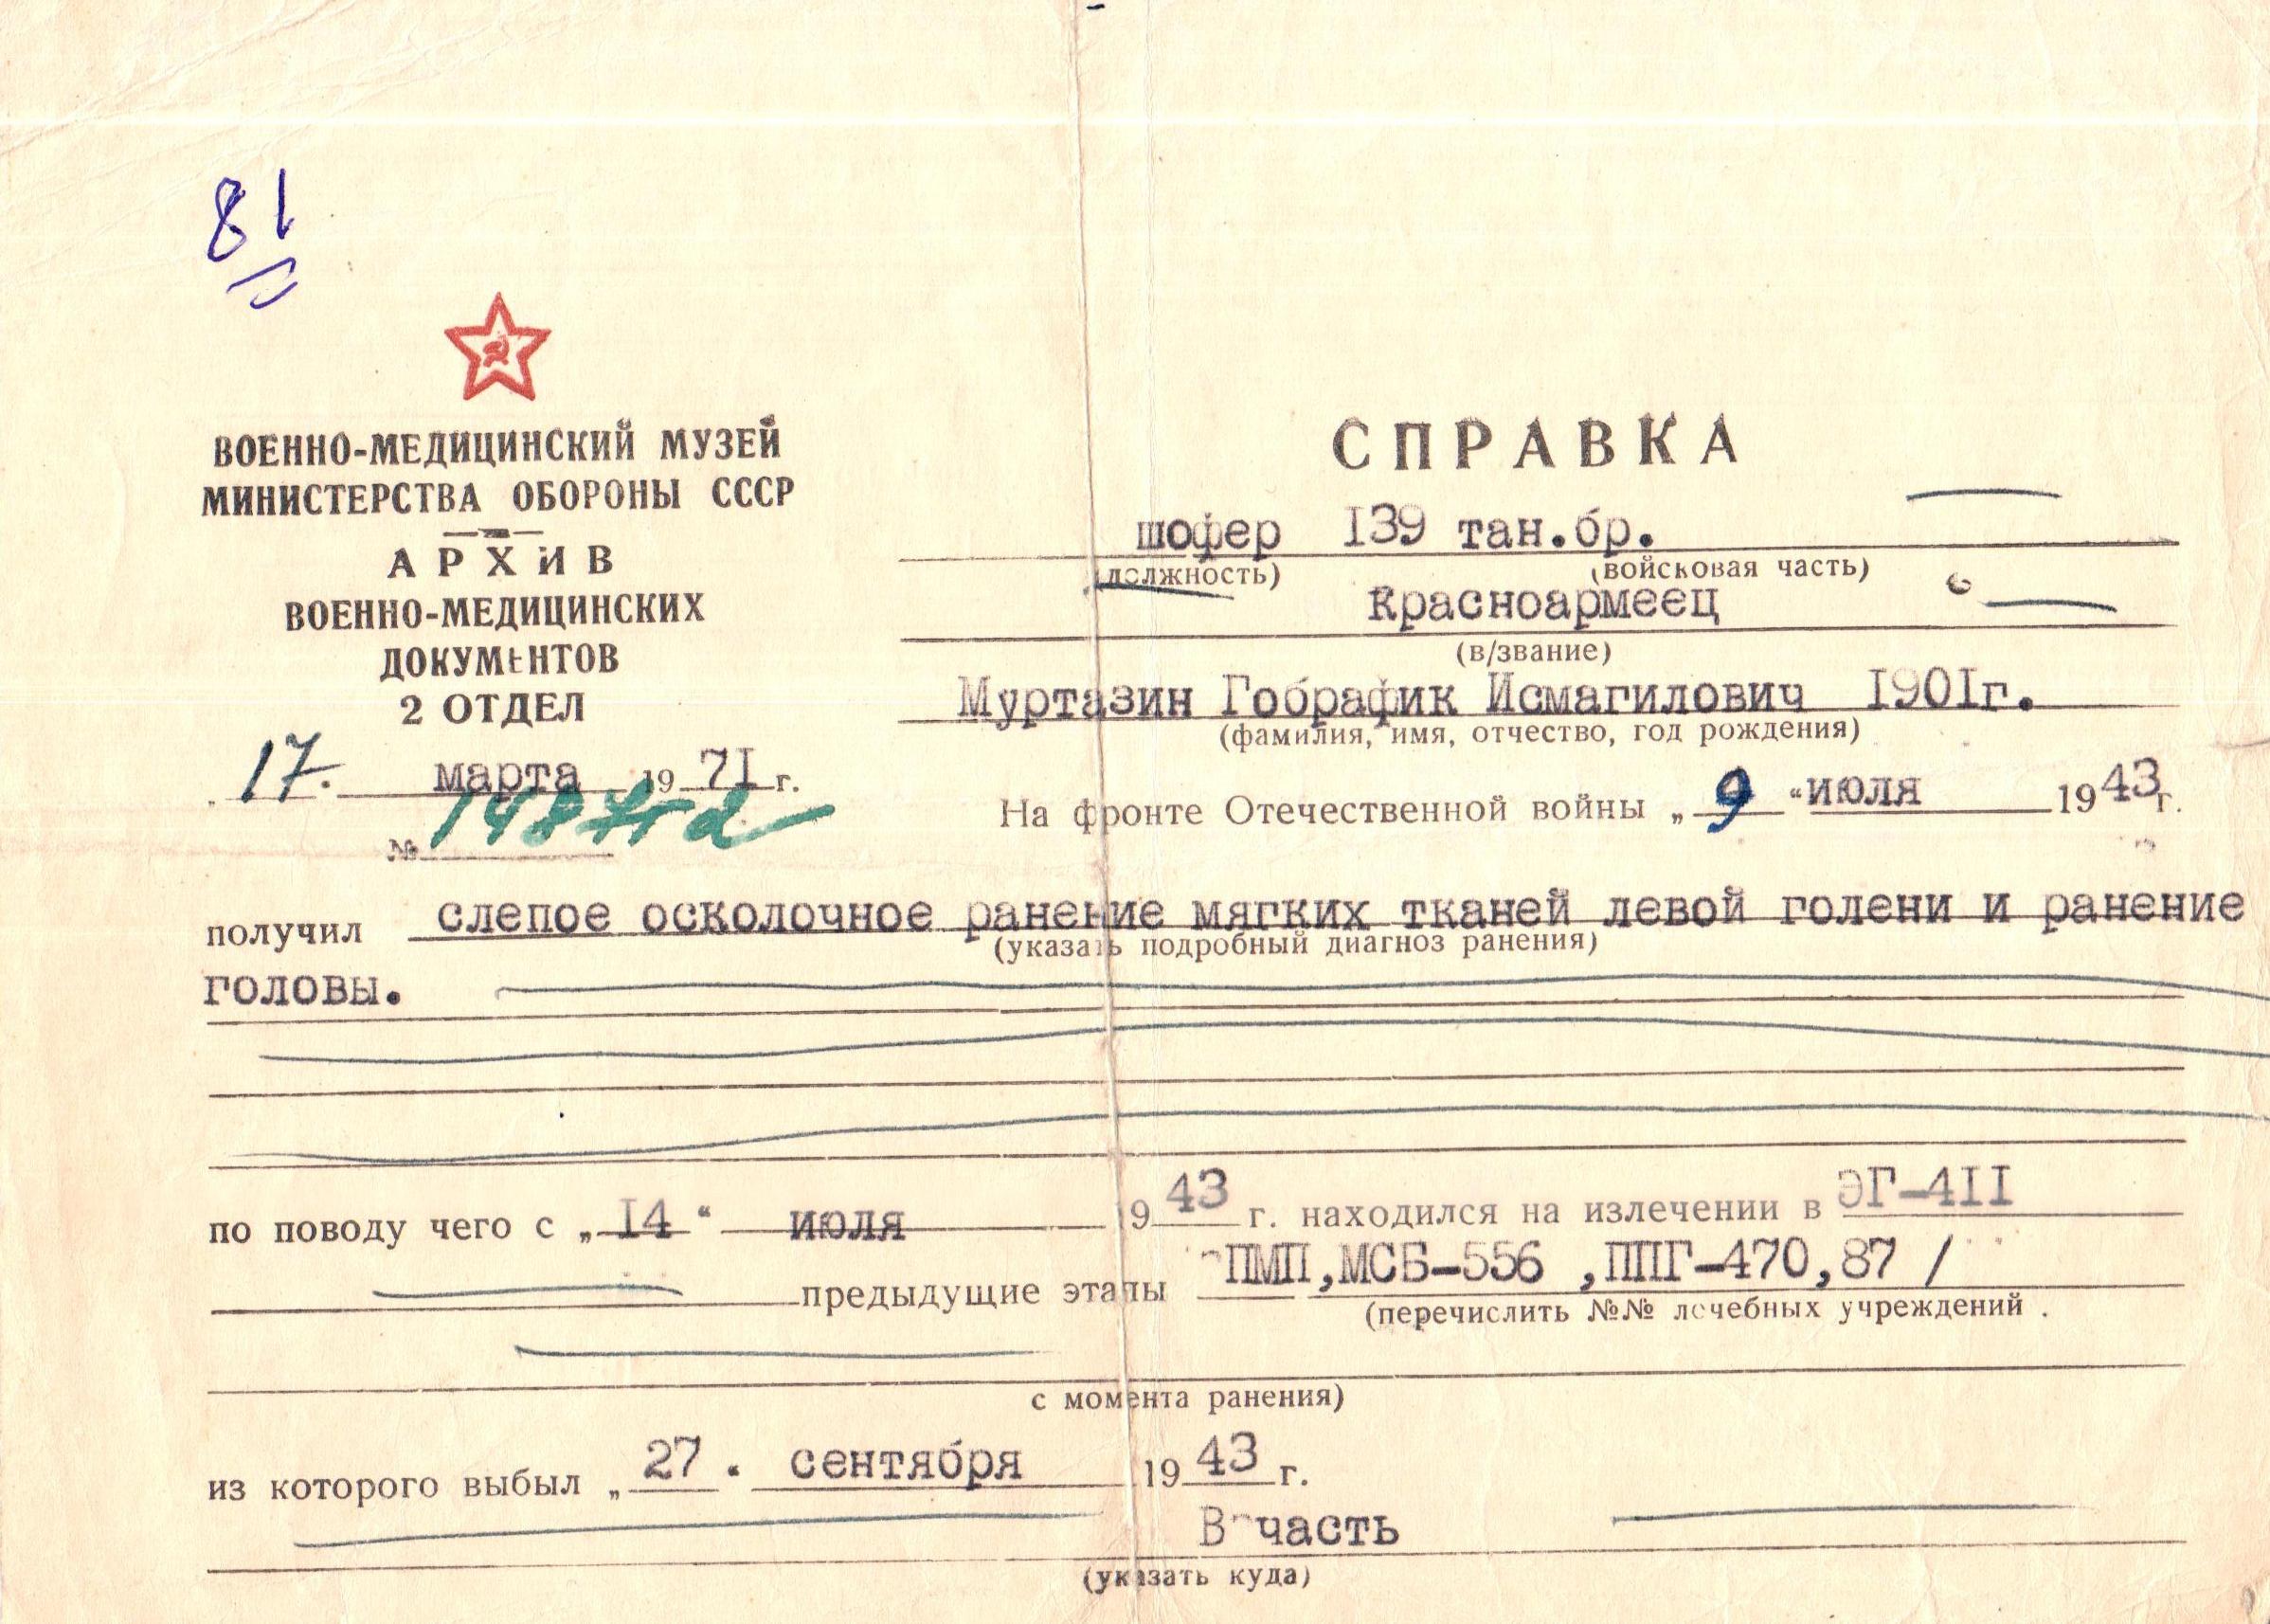 81
ВОЕННО-МЕДИЦИНСКИЙ МУЗЕЙ
МИНИСТЕРСТВА ОБОРОНЫ СССР
АРХИВ
ВОЕННО-МЕДИЦИНСКИХ
ДОКУМЕНТОВ
2 ОТДЕЛ
„17. марта 1971 г.
№
СПРАВКА
шофер 139 тан.бр.
(должность) (войсковая часть)
Красноармеец
(в/звание)
Муртазин Гобрафик Исмагилович 1901г.
(фамилия, имя, отчество, год рождения)
На фронте Отечественной войны „9“ июля 1943г.
получил слепое осколочное ранение мягких тканей левой голени и ранение
(указать подробный диагноз ранения)
головы.
по поводу чего с „14“ июля 1943 г. находился на излечении в ЭГ-411
предыдущие этапы ПМП,МСБ-556 ,ППГ-470,87 /
(перечислить №№ лечебных учреждений
с момента ранения)
из которого выбыл „27. сентября 1943 г.
В часть
(указать куда)